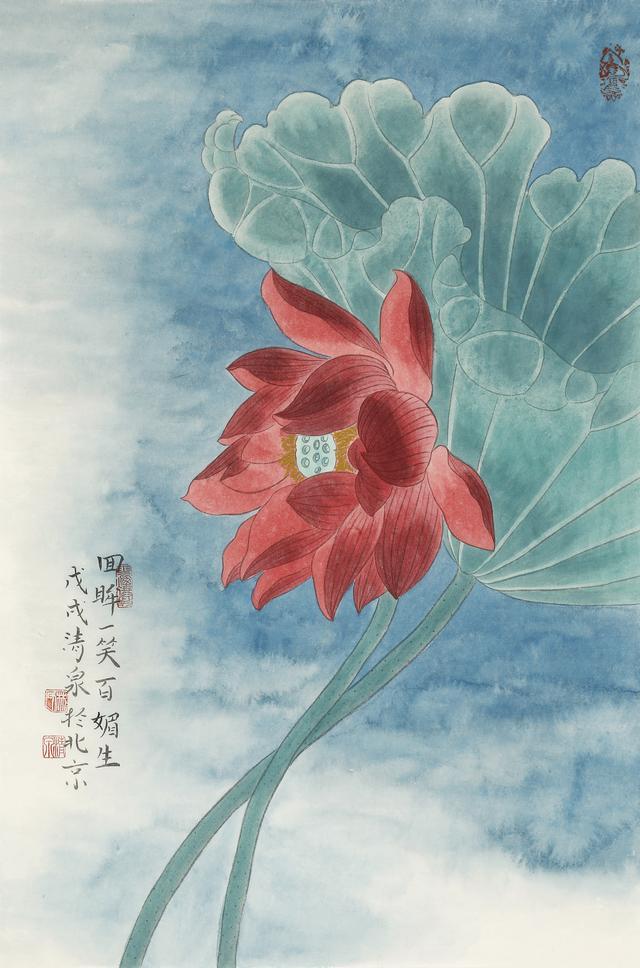 回眸一笑百媚生
戊戌清泉於北京